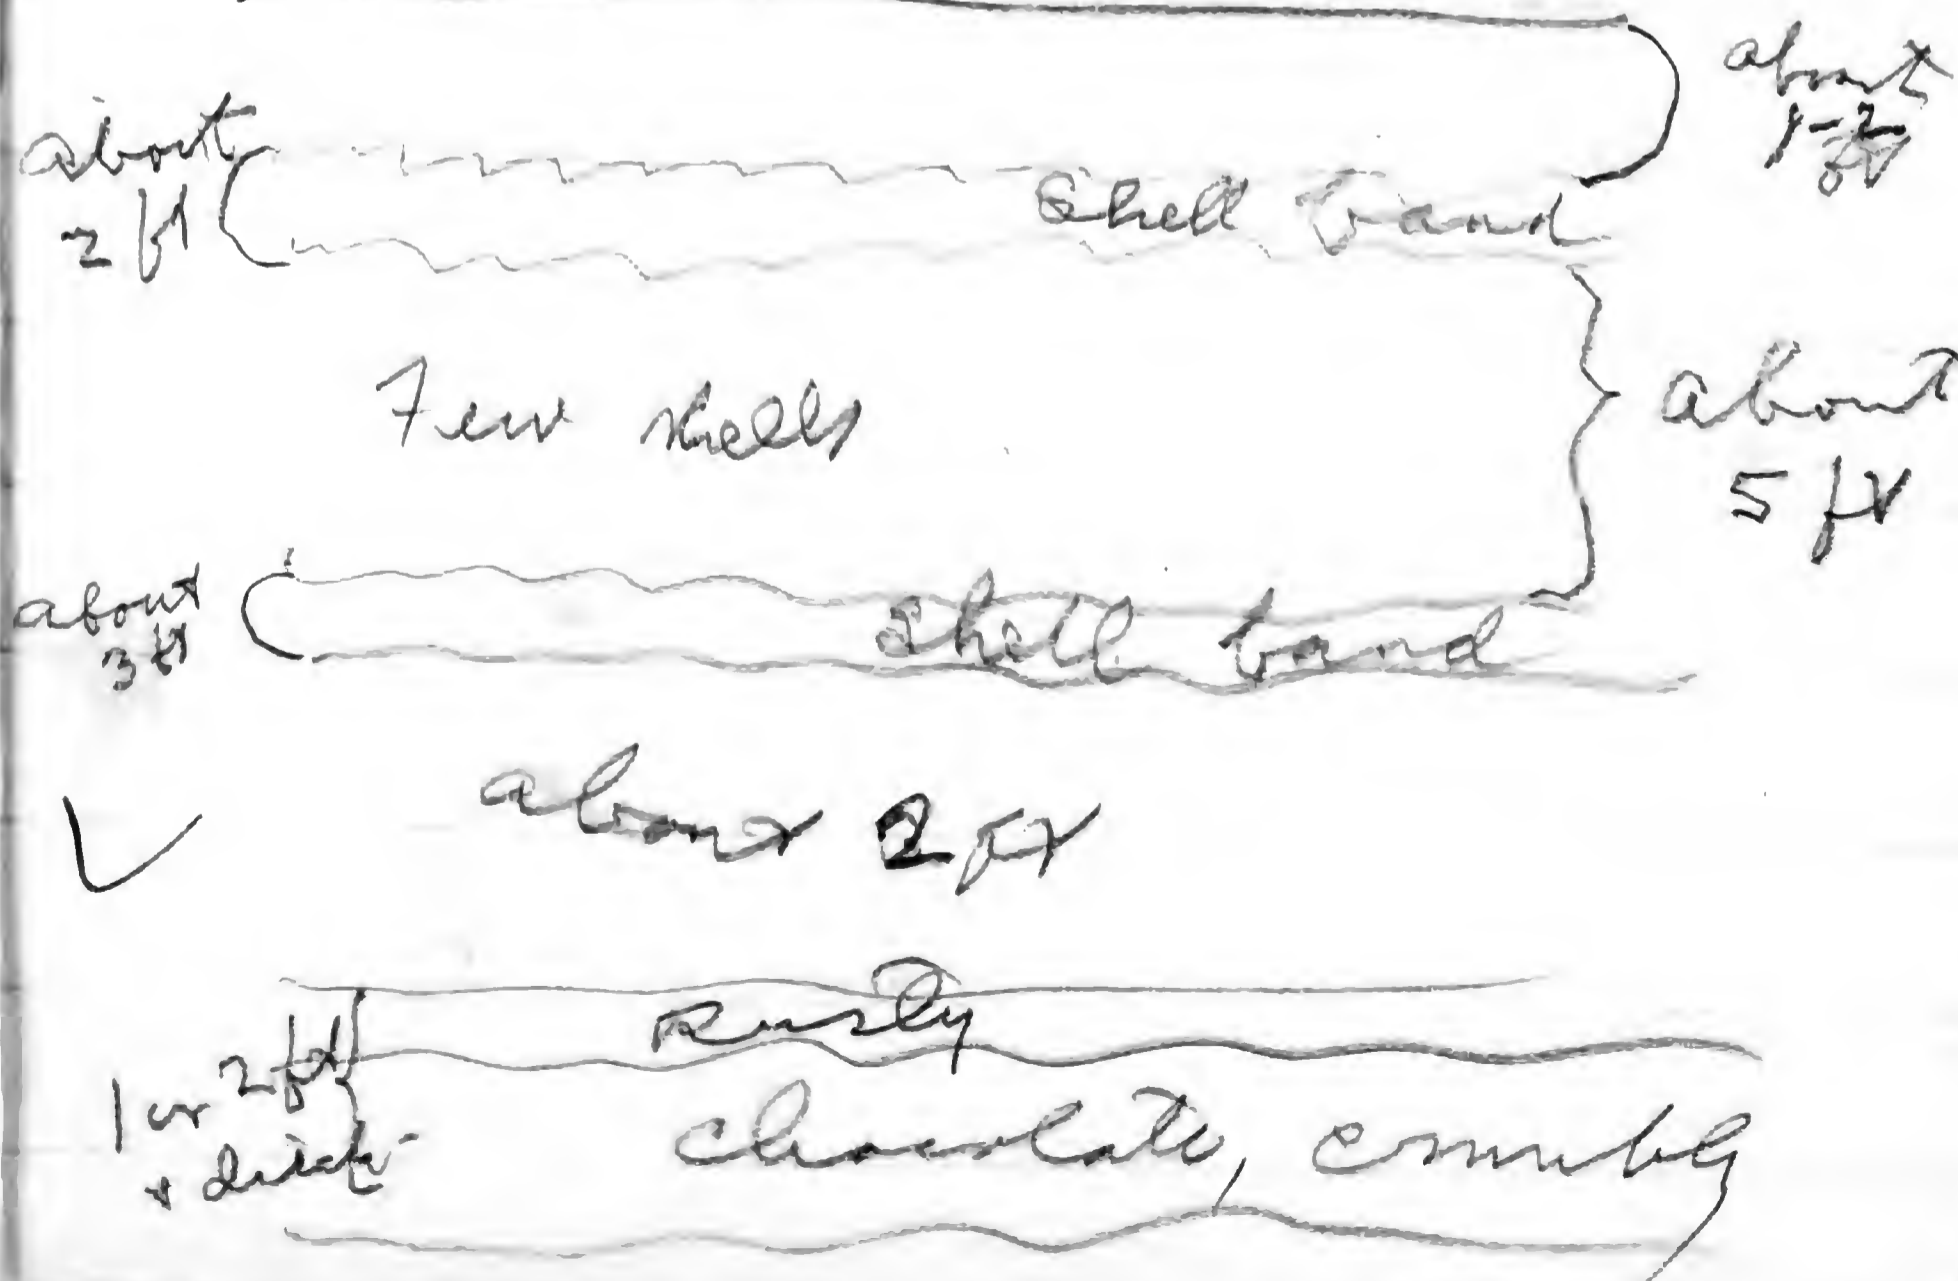 about
1-2
ft
about
2 ft
Shell band
Few shells
about
5 ft
about
3 ft
Shell band
about 2 ft
Rusty
1 or 2 ft
chocolate, crumbly